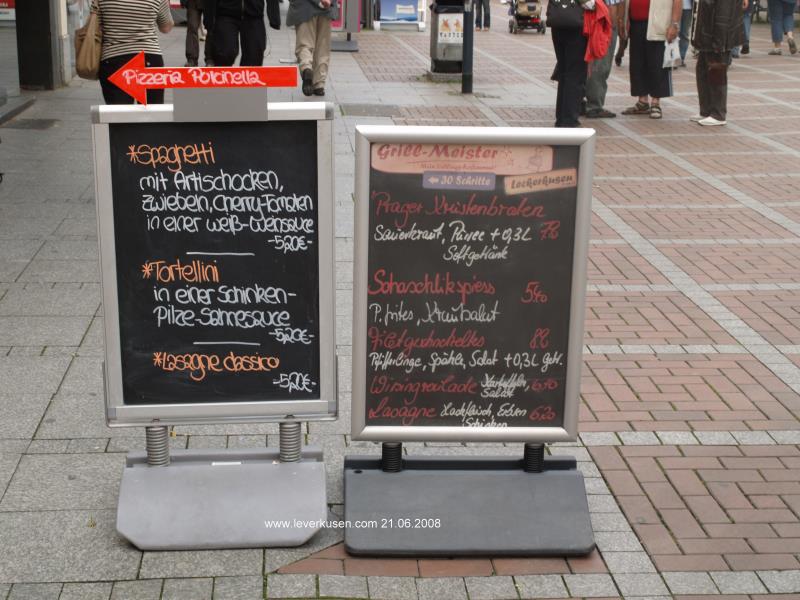 Pizzeria Pulcinella
*Spaghetti
mit Artischocken,
Zwiebeln, Cherry-Tomaten
in einer weiß-Weinsauce
-5,20€-
*Tortellini
in einer Schinken-
Pilze-Sahnesauce
-5,20€-
*Lasagne classico
-5,20€-
Grill-Meister
Mein Lieblings-Restaurant!
← 30 Schritte
Leckerkusen
Prager Krustenbraten
Sauerkraut, Püree + 0,3L
Softgetränk
Schaschlikspiess 5,40
P. frites, Krautsalat
Filetgeschnetzeltes 8,20
Pfifferlinge, Spätzle, Salat + 0,3L Getr.
Wirsingroulade Kartoffeln, 6,70
Salat
Lasagne Hackfleisch, Erbsen 6,20
Schinken
www.leverkusen.com 21.06.2008